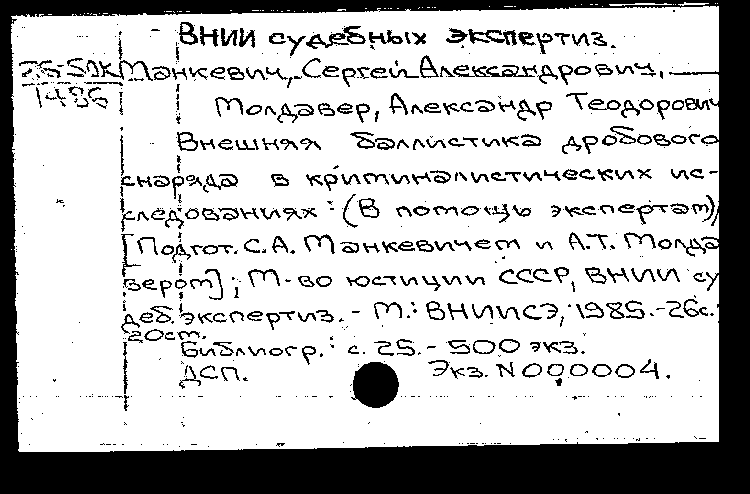 ВНИИ судебных экспертиз.
Манкевич, Сергей Александрович,
1486
Молдавер, Александр Теодорович
Внешняя баллистика дробового
снаряда в криминалистических ис-
следованиях: (В помощь экспертам)
[Подгот. С.А. Манкевичем и А.Т. Молда
вером]; М-во юстиции СССР, ВНИИ су
деб. экспертиз. - М.: ВНИИСЭ, 1985. - 26с.
20см.
Библиогр.: с. 25. - 500 экз.
ДСП. Экз. N 000004.